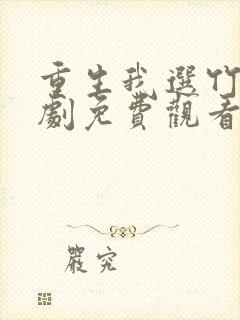 重生我選竹
劇免費觀看
嚴究